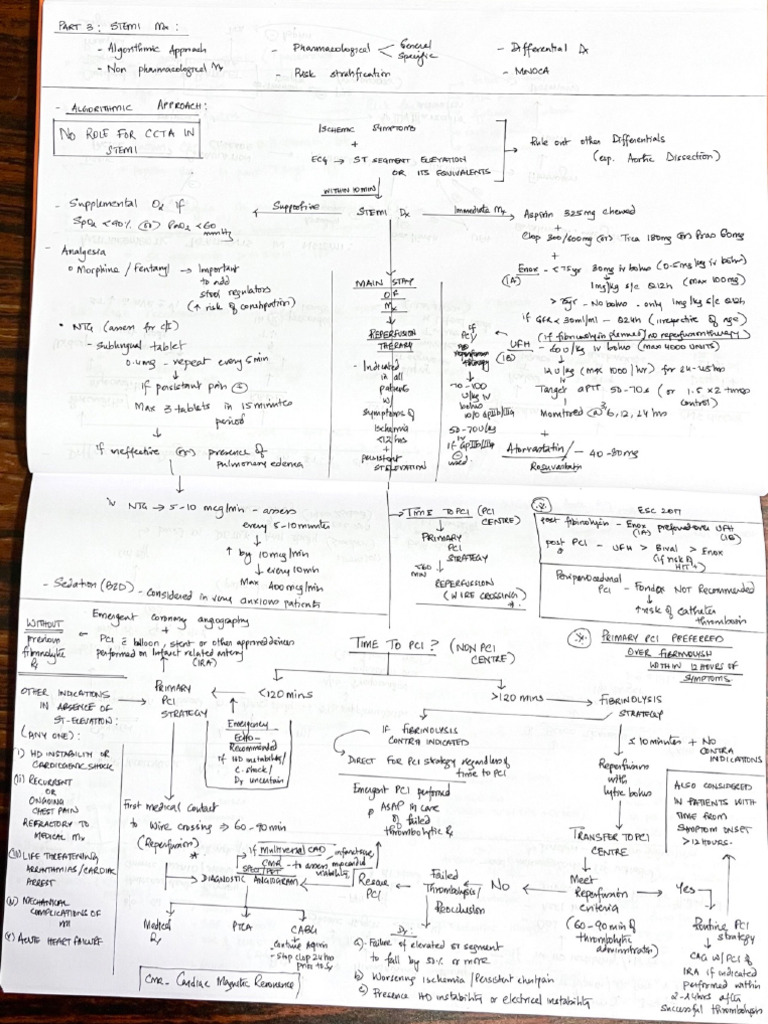 PART 3: STEMI Mx:
- Algorithmic Approach
- Non pharmacological Mx
- Pharmacological < General
Specific
- Risk stratification
- Differential Dx
- MINOCA
- ALGORITHMIC APPROACH:
NO ROLE FOR CCTA IN
STEMI
ISCHEMIC SYMPTOMS
+
ECG → ST SEGMENT ELEVATION
OR ITS EQUIVALENTS
→ Rule out other Differentials
(esp. Aortic Dissection)
WITHIN 10 MIN
STEMI Dx
Supportive
Immediate Mx
- Supplemental O2 if
SpO2 <90% (or) PaO2 <60
mmHg
- Analgesia
o Morphine / Fentanyl → Important
to add
stool regulators
(↑ risk of constipation)
• NTG (assess for c/I)
- sublingual tablet
0.4mg - repeat every 5 min
↓
if persistent pain ⊕
↓
Max 3 tablets in 15 minutes
period
↓
if ineffective (or) presence of
pulmonary edema
↓
iv NTG → 5-10 mcg/min - assess
every 5-10 minutes
↓
↑ by 10 mcg/min
↓ every 10 min
Max 400 mcg/min
- Sedation (BZD) - considered in very anxious patients
MAIN STAY
OF
Mx
↓
REPERFUSION
THERAPY
- Indicated
in all
patients
w/
symptoms of
Ischemia
<12 hrs
+
persistent
ST ELEVATION
Aspirin 325mg chewed
+
Clop 300/600mg (or) Tica 180mg (or) Prasu 60mg
+
Enox - <75yr 30mg iv bolus (0.5mg/kg iv bolus)
(1A)
1mg/kg s/c Q12h (max 100mg)
> 75yr - No bolus - only 1mg/kg s/c Q12h
if GFR < 30ml/ml - Q24h (irrespective of age)
(if fibrinolysis planned / no reperfusion therapy)
UFH
(1B)
- 60U/kg iv bolus (max 4000 UNITS)
↓
12U/kg (max 1000/hr) for 24-48hrs
↓
Target aPTT 50-70s (or 1.5 x 2 times
control)
Monitored @ 3, 6, 12, 24 hrs
+
Atorvastatin / - 40-80mg
Rosuvastatin
if
PCI
70-100
U/kg iv
bolus
50-70U/kg
iv
used
→ TIME TO PCI (PCI
CENTRE)
↓
PRIMARY
PCI
STRATEGY
<60
min
REPERFUSION
(WIRE CROSSING)
ESC 2017
post fibinolysin - Enox preferred over UFH
(1A)
(1B)
post PCI - UFH > Bival > Enox
(if risk of
HIT+)
Periprocedural
PCI - Fondax NOT Recommended
↓
↑ risk of catheter
thrombosis
PRIMARY PCI PREFERRED
OVER FIBRINOLYSIS
WITHIN 12 HOURS OF
SYMPTOMS
WITHOUT
previous
fibrinolytic
Rx
Emergent coronary angiography
+
PCI c balloon, stent or other approved devices
performed on Infarct related artery
(IRA)
TIME TO PCI? (NON PCI
CENTRE)
PRIMARY
PCI
STRATEGY
<120 mins
>120 mins
FIBRINOLYSIS
STRATEGY
OTHER INDICATIONS
IN ABSENCE OF
ST-ELEVATION:
(ANY ONE):
i) HD INSTABILITY OR
CARDIOGENIC SHOCK
(ii) RECURRENT
OR
ONGOING
CHEST PAIN
REFRACTORY TO
MEDICAL Mx
(iii) LIFE THREATENING
ARRHYTHMIAS/CARDIAC
ARREST
(iv) MECHANICAL
COMPLICATIONS OF
MI
(v) ACUTE HEART FAILURE
Emergency
Echo-
Recommended
if HD instability/
c-shock/
Dx uncertain
IF FIBRINOLYSIS
CONTRA INDICATED
DIRECT FOR PCI strategy regardless of
time to PCI
Emergent PCI performed
ASAP in case
of failed
thrombolytic Rx
≤ 10 minutes + NO
CONTRA
INDICATIONS
Reperfusion
with
lytic bolus
↓
TRANSFER TO PCI
CENTRE
↓
Meet
Reperfusion
criteria
(60-90 min of
thrombolytic
administration)
ALSO CONSIDERED
IN PATIENTS WITH
TIME FROM
SYMPTOM ONSET
>12 HOURS.
First medical contact
to Wire crossing ⇒ 60-90 min
(Reperfusion)
If Multivessel CAD
CMR - to assess myocardial
SPECT/PET
viability
DIAGNOSTIC ANGIOGRAM
Rescue
PCI
Failed
Thrombolysis/
Reocclusion
No
Yes
Routine PCI
strategy
↓
CAG w/ PCI of
IRA if indicated
performed within
2-24 hours after
successful thrombolysis
Medical
Rx
PTCA
CABG
- Continue Aspirin
- Stop clop 24 hr
prior to Sx
Dx:
a) - Failure of elevated ST segment
to fall by 50% or more
b) Worsening Ischemia/Persistent chestpain
c) Presence HD instability or electrical instability
CMR - Cardiac Magnetic Resonance